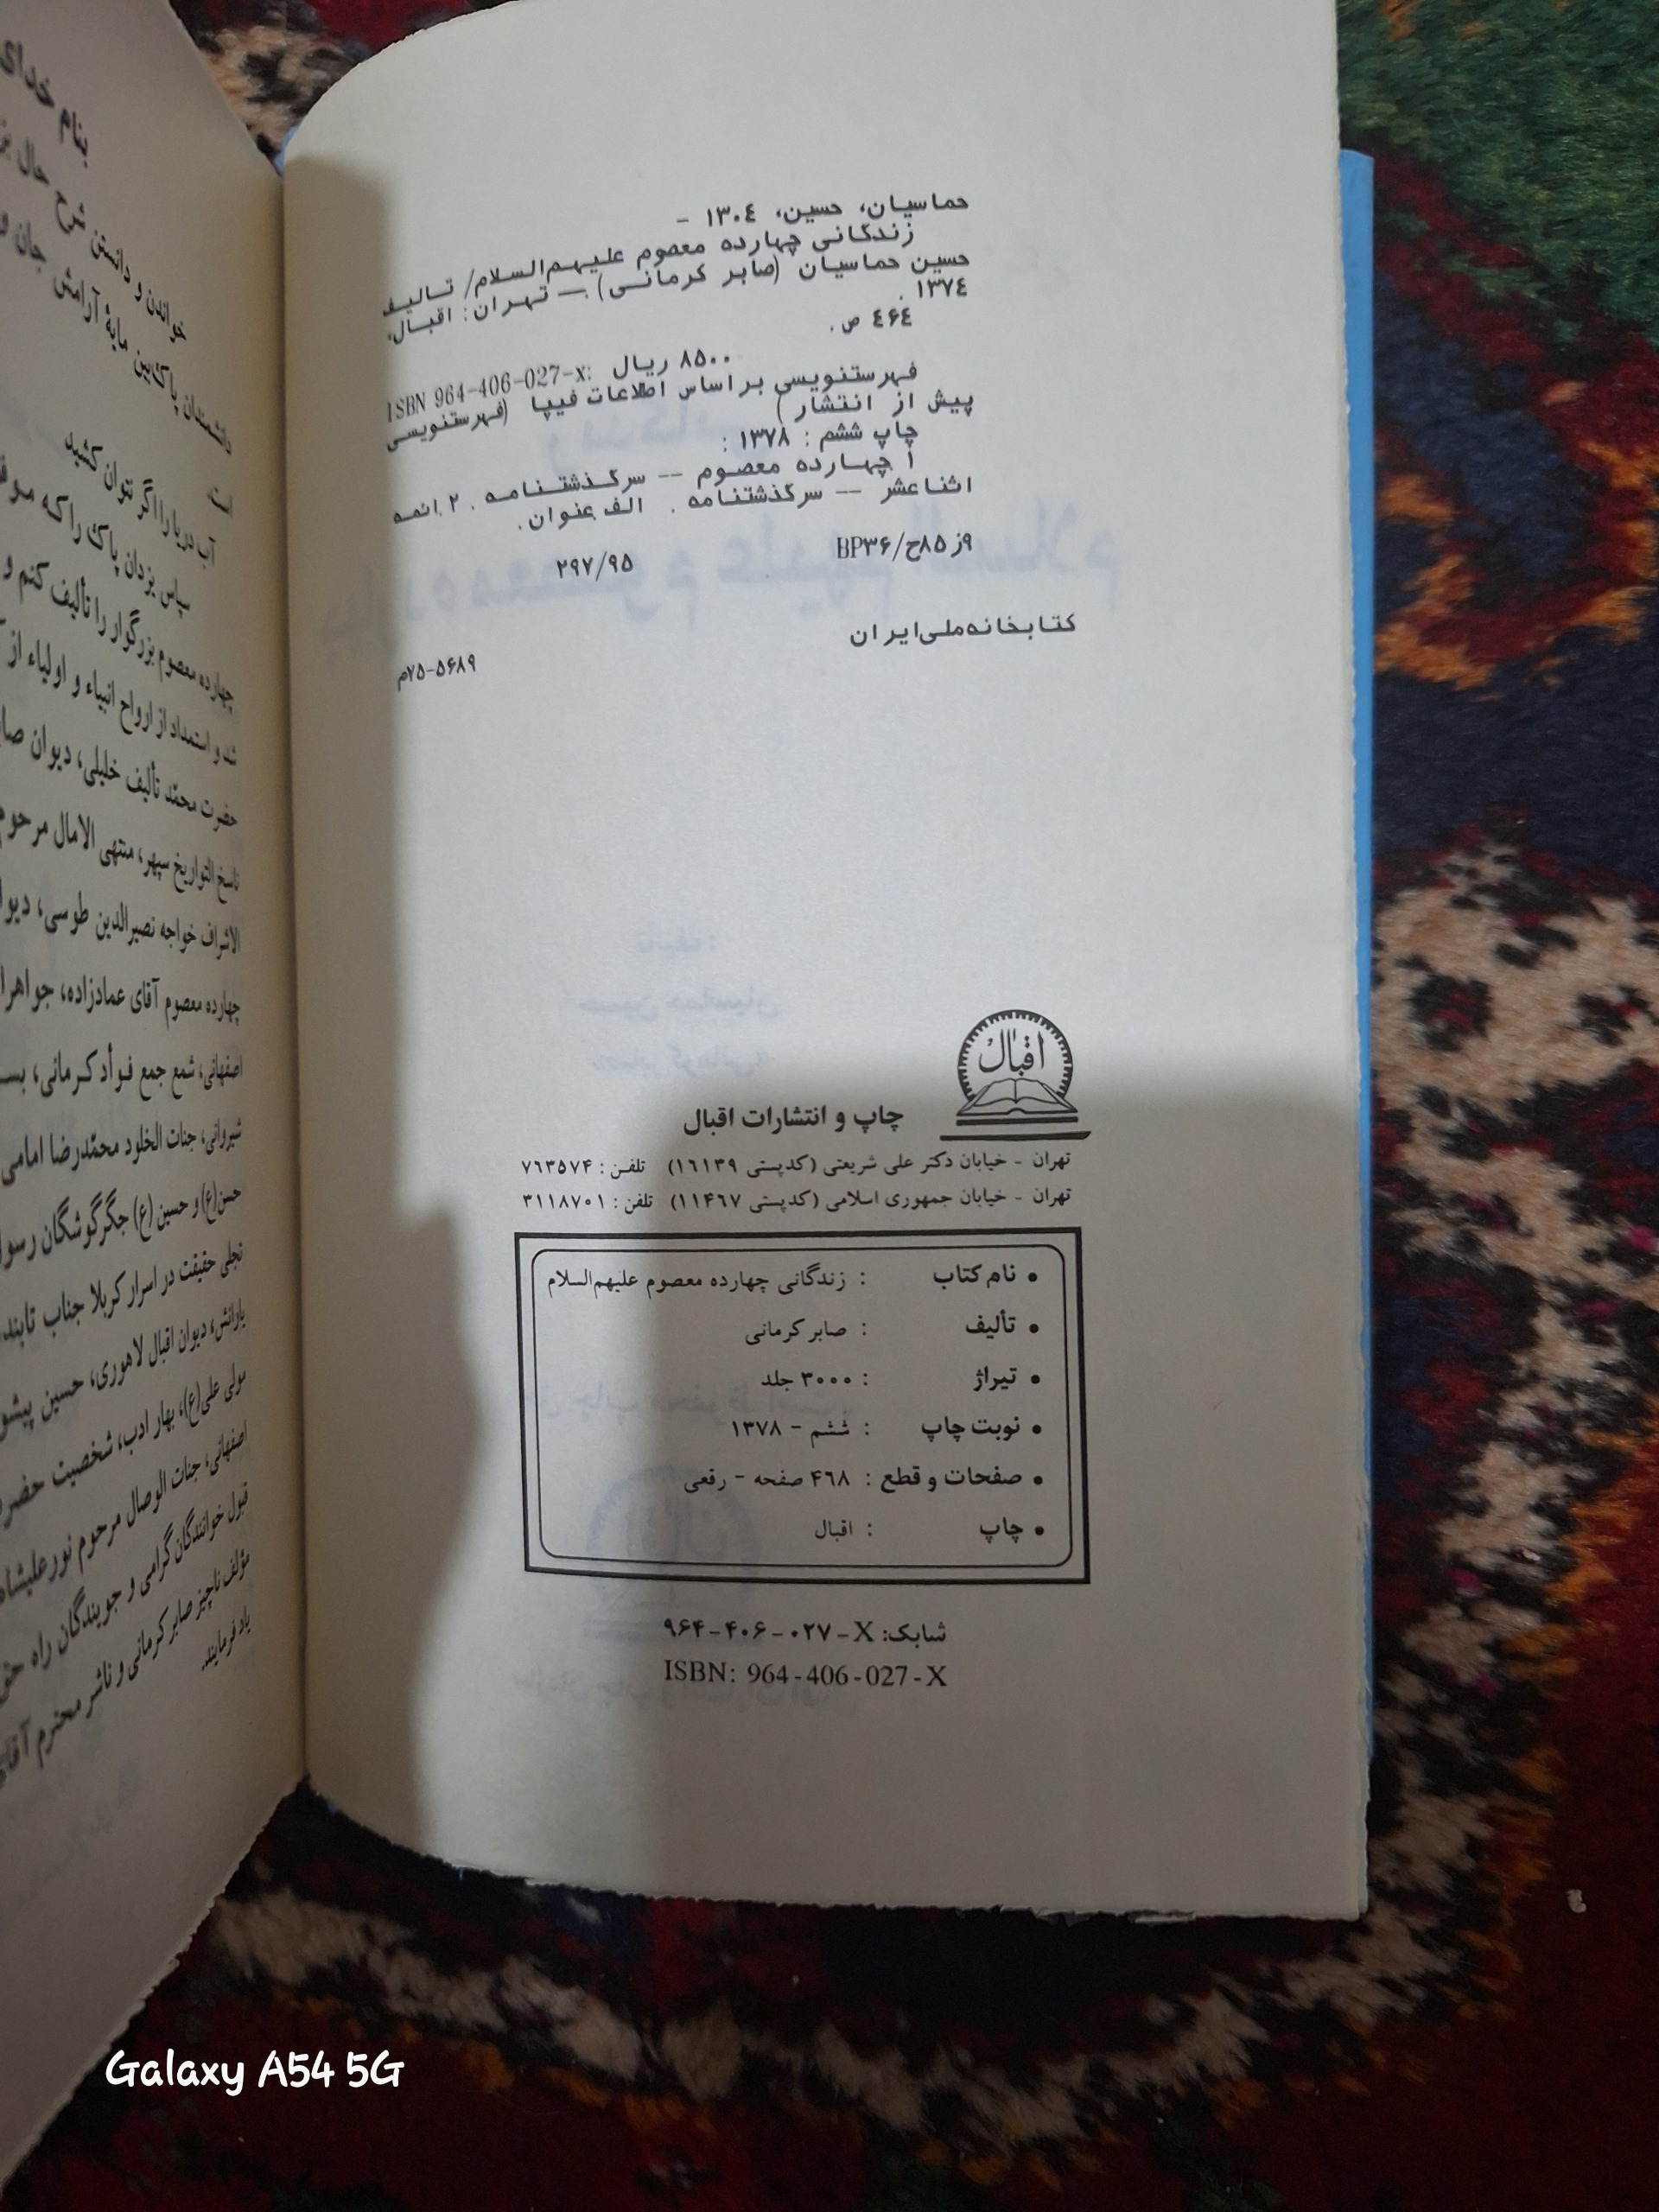 حماسیان، حسین، ۱۳۰۴ -
زندگانی چهارده معصوم علیهم‌السلام/ تالیف
حسین حماسیان (صابر کرمانی) — تهران: اقبال،
۱۳۷٤ .
٤۶٤ ص.
ISBN 964-406-027-x: ۸۵۰۰ ریال
فهرستنویسی براساس اطلاعات فیپا (فهرستنویسی
پیش از انتشار)
چاپ ششم : ۱۳۷۸ :
۱ چهارده معصوم -- سرگذشتنامه . ۲. ائمه
اثناعشر -- سرگذشتنامه . الف. عنوان.
۹ز۸۵ح/BP۳۶
۲۹۷/۹۵
کتابخانه ملی ایران
۷۵-۵۶۸۹م
اقبال
چاپ و انتشارات اقبال
تهران - خیابان دکتر علی شریعتی (کدپستی ۱۶۱۳۹) تلفن : ۷۶۳۵۷۴
تهران - خیابان جمهوری اسلامی (کدپستی ۱۱۴۶۷) تلفن : ۳۱۱۸۷۰۱
• نام کتاب : زندگانی چهارده معصوم علیهم‌السلام
• تألیف : صابر کرمانی
• تیراژ : ۳۰۰۰ جلد
• نوبت چاپ : ششم - ۱۳۷۸
• صفحات و قطع : ۴۶۸ صفحه - رقعی
• چاپ : اقبال
شابک: X-۹۶۴-۴۰۶-۰۲۷
ISBN: 964-406-027-X
بنام خدای
خواندن و دانستن شرح حال
دانشمندان پاک‌بین مایهٔ آرامش جان و
است
آب دریا را اگر نتوان کشید
سپاس یزدان پاک را که
چهارده معصوم بزرگوار را تألیف کنم و
شد و استمداد از ارواح انبیاء و اولیاء از
حضرت محمّد تألیف خلیلی، دیوان
ناسخ التواریخ سپهر، منتهی الامال مرحوم
الاشراف خواجه نصیرالدین طوسی،
چهارده معصوم آقای عمادزاده،
اصفهانی، شمع جمع فؤاد کرمانی،
شیروانی، جنات الخلود محمّدرضا امامی
حسن(ع) و حسین(ع) جگرگوشگان
تجلی حقیقت در اسرار کربلا جناب
یارانش، دیوان اقبال لاهوری، حسین
مولی علی(ع)، بهار ادب، شخصیت
اصفهانی، جنات الوصال مرحوم
قبول خوانندگان گرامی و جویندگان راه
مؤلف ناچیز صابر کرمانی و ناشر محترم
یاد فرمایند.
Galaxy A54 5G